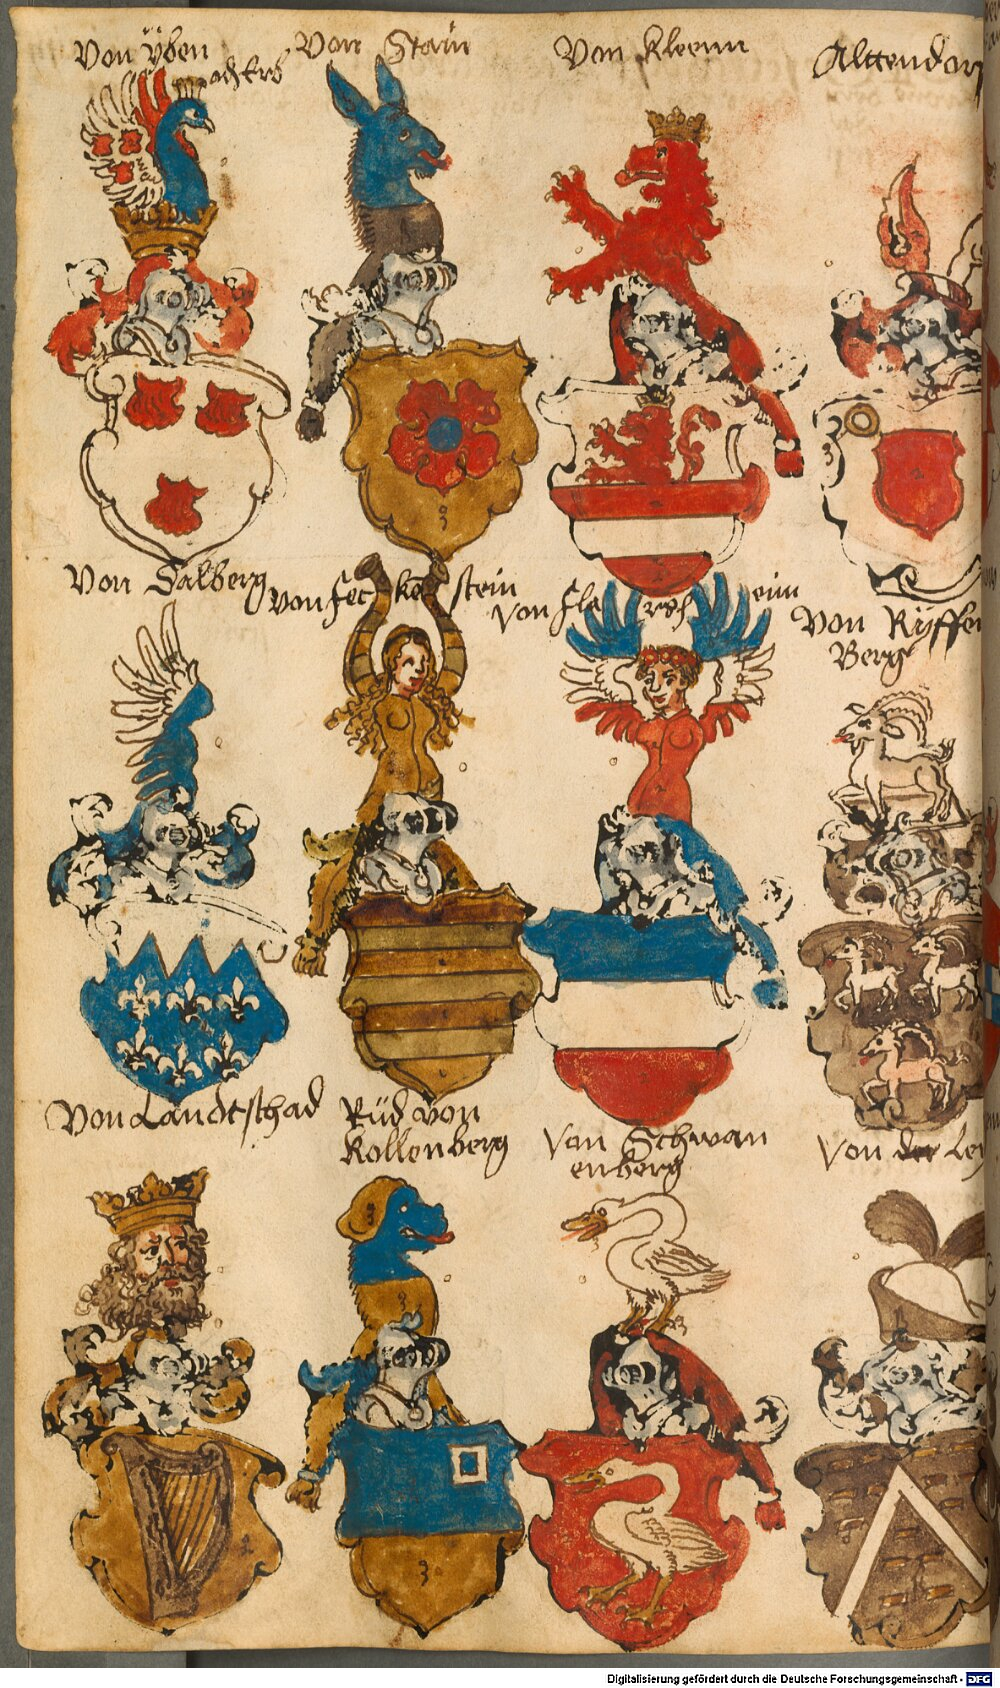 Von Ÿben
Von Stain
Von Kleenn
Alttendor
Von Dalberg
von flec ken stein
Von fle rsh eim
Von Rÿffen
Berg
Von Landtschad
Rüd von
Kollenberg
Von Schwan
enberg
Von der Ley
Digitalisierung gefördert durch die Deutsche Forschungsgemeinschaft - DFG